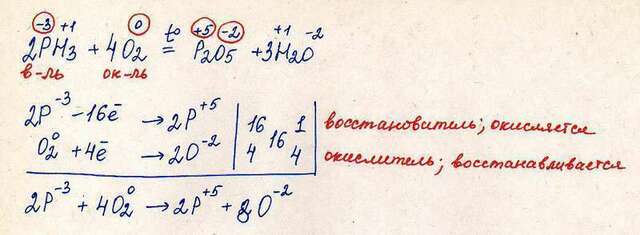 -3 +1 0 t° +5 -2 +1 -2
2PH3 + 4O2 = P2O5 + 3H2O
в-ль ок-ль
2P⁻³ - 16ē → 2P⁺⁵ | 16 | 16 | 1 | восстановитель; окисляется
O2⁰ + 4ē → 2O⁻² | 4 | 4 | окислитель; восстанавливается
2P⁻³ + 4O2⁰ → 2P⁺⁵ + 8O⁻²